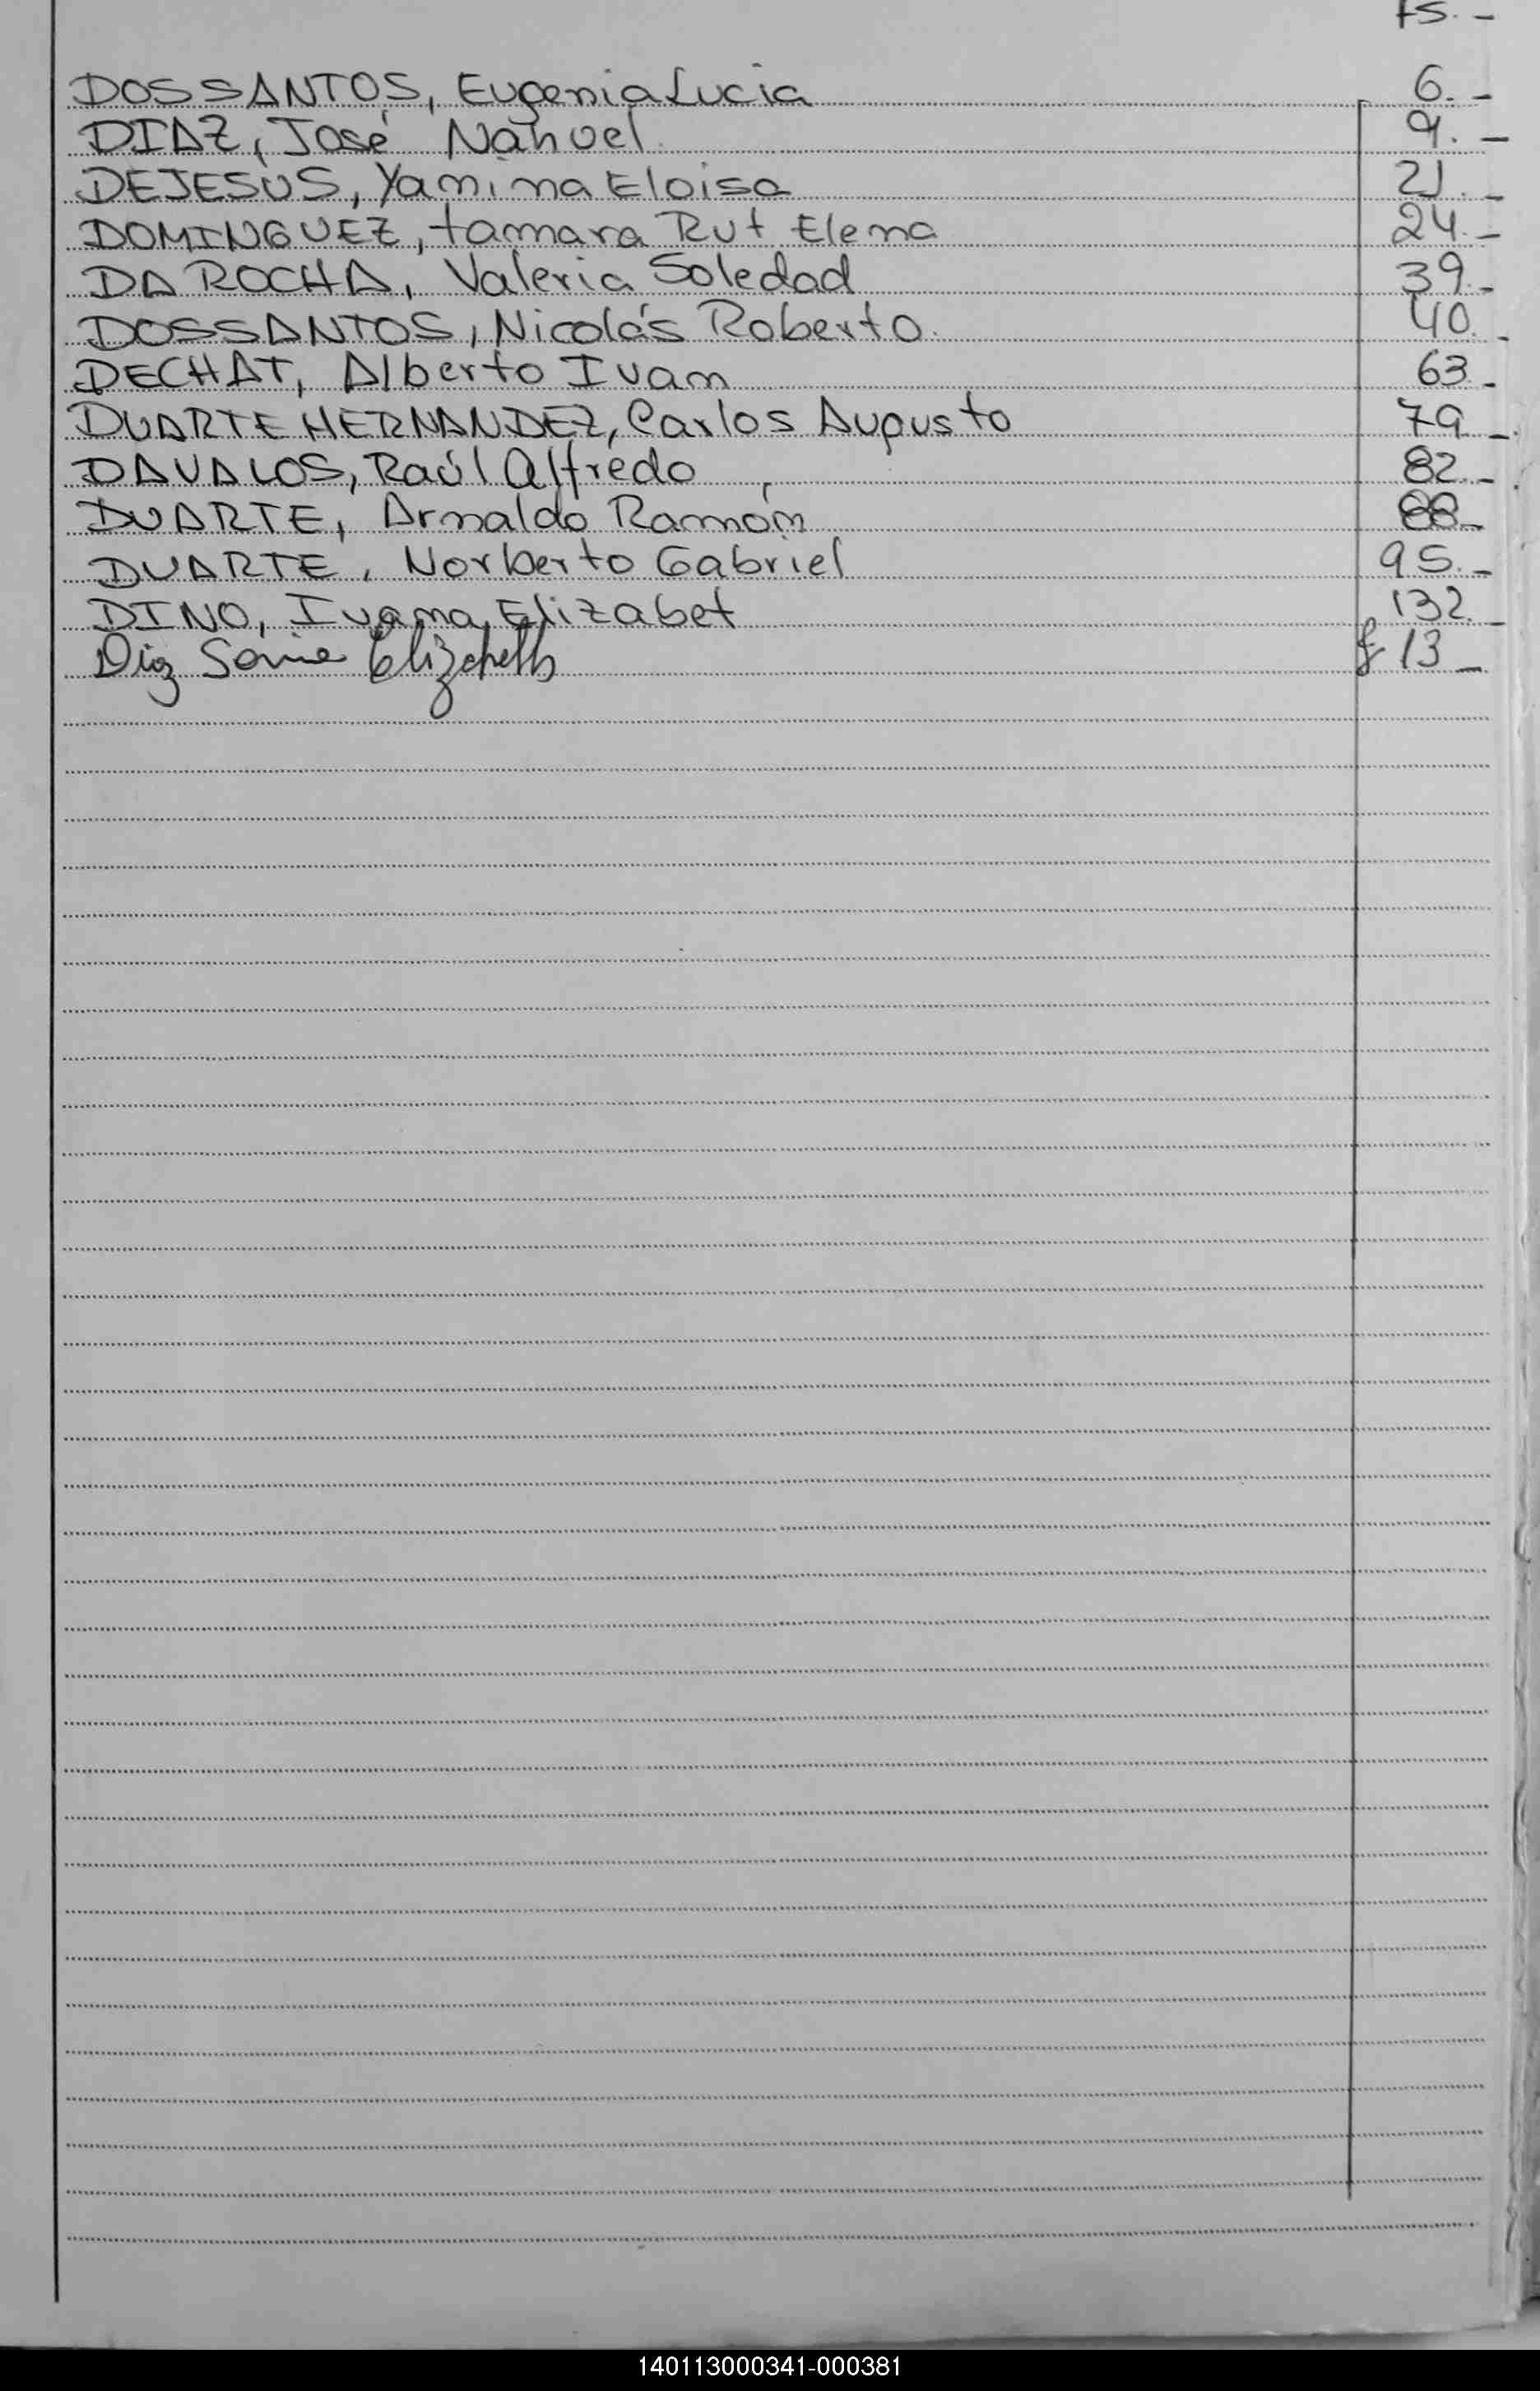 Fs. -
DOS SANTOS, Eugenia Lucia 6. -
DIAZ, José Nahuel 9. -
DEJESUS, Yamina Eloisa 21. -
DOMINGUEZ, tamara Rut Elena 24. -
DA ROCHA, Valeria Soledad 39. -
DOSSANTOS, Nicolás Roberto. 40. -
DECHAT, Alberto Ivan 63. -
DUARTE HERNANDEZ, Carlos Augusto 79. -
DAVALOS, Raúl Alfredo 82. -
DUARTE, Arnaldo Ramón 88. -
DUARTE, Norberto Gabriel 95. -
DINO, Ivana Elizabet 132. -
Diaz Sonia Elizabeth f 13 -
140113000341-000381